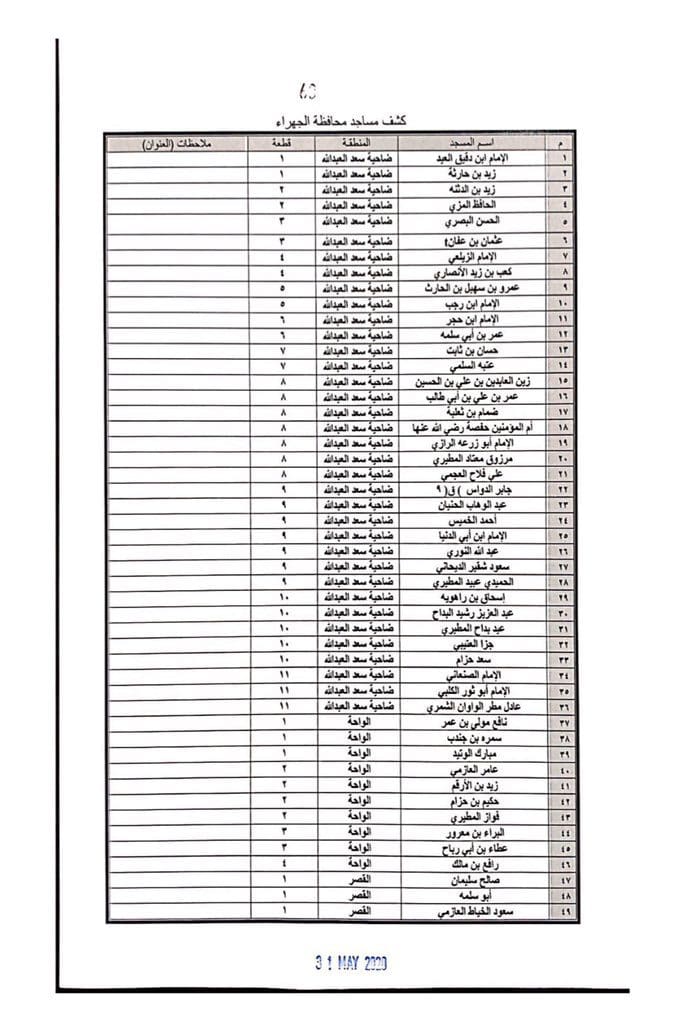 كشف مساجد محافظة الجهراء
م اسم المسجد المنطقة قطعة ملاحظات (العنوان)
١ الإمام ابن دقيق العيد ضاحية سعد العبدالله ١
٢ زيد بن حارثة ضاحية سعد العبدالله ١
٣ زيد بن الدثنه ضاحية سعد العبدالله ٢
٤ الحافظ المزي ضاحية سعد العبدالله ٢
٥ الحسن البصري ضاحية سعد العبدالله ٣
٦ عثمان بن عفان t ضاحية سعد العبدالله ٣
٧ الإمام الزيلعي ضاحية سعد العبدالله ٤
٨ كعب بن زيد الأنصاري ضاحية سعد العبدالله ٤
٩ عمرو بن سهيل بن الحارث ضاحية سعد العبدالله ٥
١٠ الإمام ابن رجب ضاحية سعد العبدالله ٥
١١ الإمام ابن حجر ضاحية سعد العبدالله ٦
١٢ عمر بن أبي سلمه ضاحية سعد العبدالله ٦
١٣ حسان بن ثابت ضاحية سعد العبدالله ٧
١٤ عتبه السلمي ضاحية سعد العبدالله ٧
١٥ زين العابدين بن علي بن الحسين ضاحية سعد العبدالله ٨
١٦ عمر بن علي بن أبي طالب ضاحية سعد العبدالله ٨
١٧ ضمام بن ثعلبة ضاحية سعد العبدالله ٨
١٨ أم المؤمنين حفصة رضي الله عنها ضاحية سعد العبدالله ٨
١٩ الإمام أبو زرعه الرازي ضاحية سعد العبدالله ٨
٢٠ مرزوق معتاد المطيري ضاحية سعد العبدالله ٨
٢١ علي فلاح العجمي ضاحية سعد العبدالله ٨
٢٢ جابر الدواس ) ق( ٩ ضاحية سعد العبدالله ٩
٢٣ عبد الوهاب الحنيان ضاحية سعد العبدالله ٩
٢٤ أحمد الخميس ضاحية سعد العبدالله ٩
٢٥ الإمام ابن أبي الدنيا ضاحية سعد العبدالله ٩
٢٦ عبد الله النوري ضاحية سعد العبدالله ٩
٢٧ سعود شقير الديحاني ضاحية سعد العبدالله ٩
٢٨ الحميدي عبيد المطيري ضاحية سعد العبدالله ٩
٢٩ إسحاق بن راهويه ضاحية سعد العبدالله ١٠
٣٠ عبد العزيز رشيد البداح ضاحية سعد العبدالله ١٠
٣١ عيد بداح المطيري ضاحية سعد العبدالله ١٠
٣٢ جزا العتيبي ضاحية سعد العبدالله ١٠
٣٣ سعد حزام ضاحية سعد العبدالله ١٠
٣٤ الإمام الصنعاني ضاحية سعد العبدالله ١١
٣٥ الإمام أبو ثور الكلبي ضاحية سعد العبدالله ١١
٣٦ عادل مطر الواوان الشمري ضاحية سعد العبدالله ١١
٣٧ نافع مولي بن عمر الواحة ١
٣٨ سمره بن جندب الواحة ١
٣٩ مبارك الوتيد الواحة ١
٤٠ عامر العازمي الواحة ٢
٤١ زيد بن الأرقم الواحة ٢
٤٢ حكيم بن حزام الواحة ٢
٤٣ فواز المطيري الواحة ٢
٤٤ البراء بن معرور الواحة ٣
٤٥ عطاء بن أبي رباح الواحة ٣
٤٦ رافع بن مالك الواحة ٤
٤٧ صالح سليمان القصر ١
٤٨ أبو سلمه القصر ١
٤٩ سعود الخياط العازمي القصر ١
31 MAY 2020